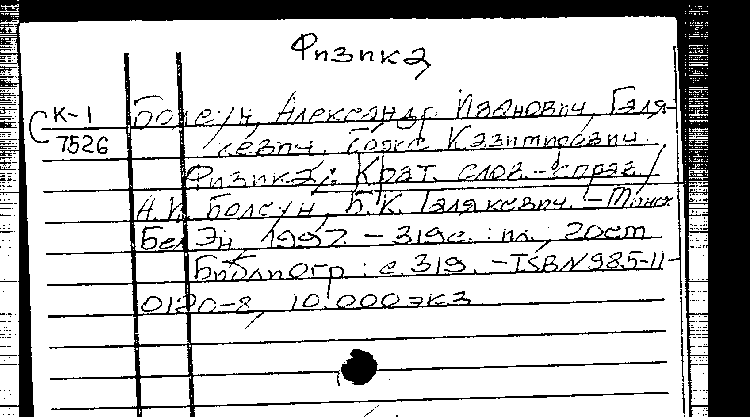 Физика
К-1
7526
Болсун, Александр Иванович, Галя-
кевич, Бояж Казимирович.
Физика: Крат. слов.-справ /
А.И. Болсун, Б.К. Галякевич. - Минск
БелЭн, 1997. - 319с.: ил., 20cm
Библиогр.: с. 319. - ISBN 985-11-
0120-8, 10.000экз